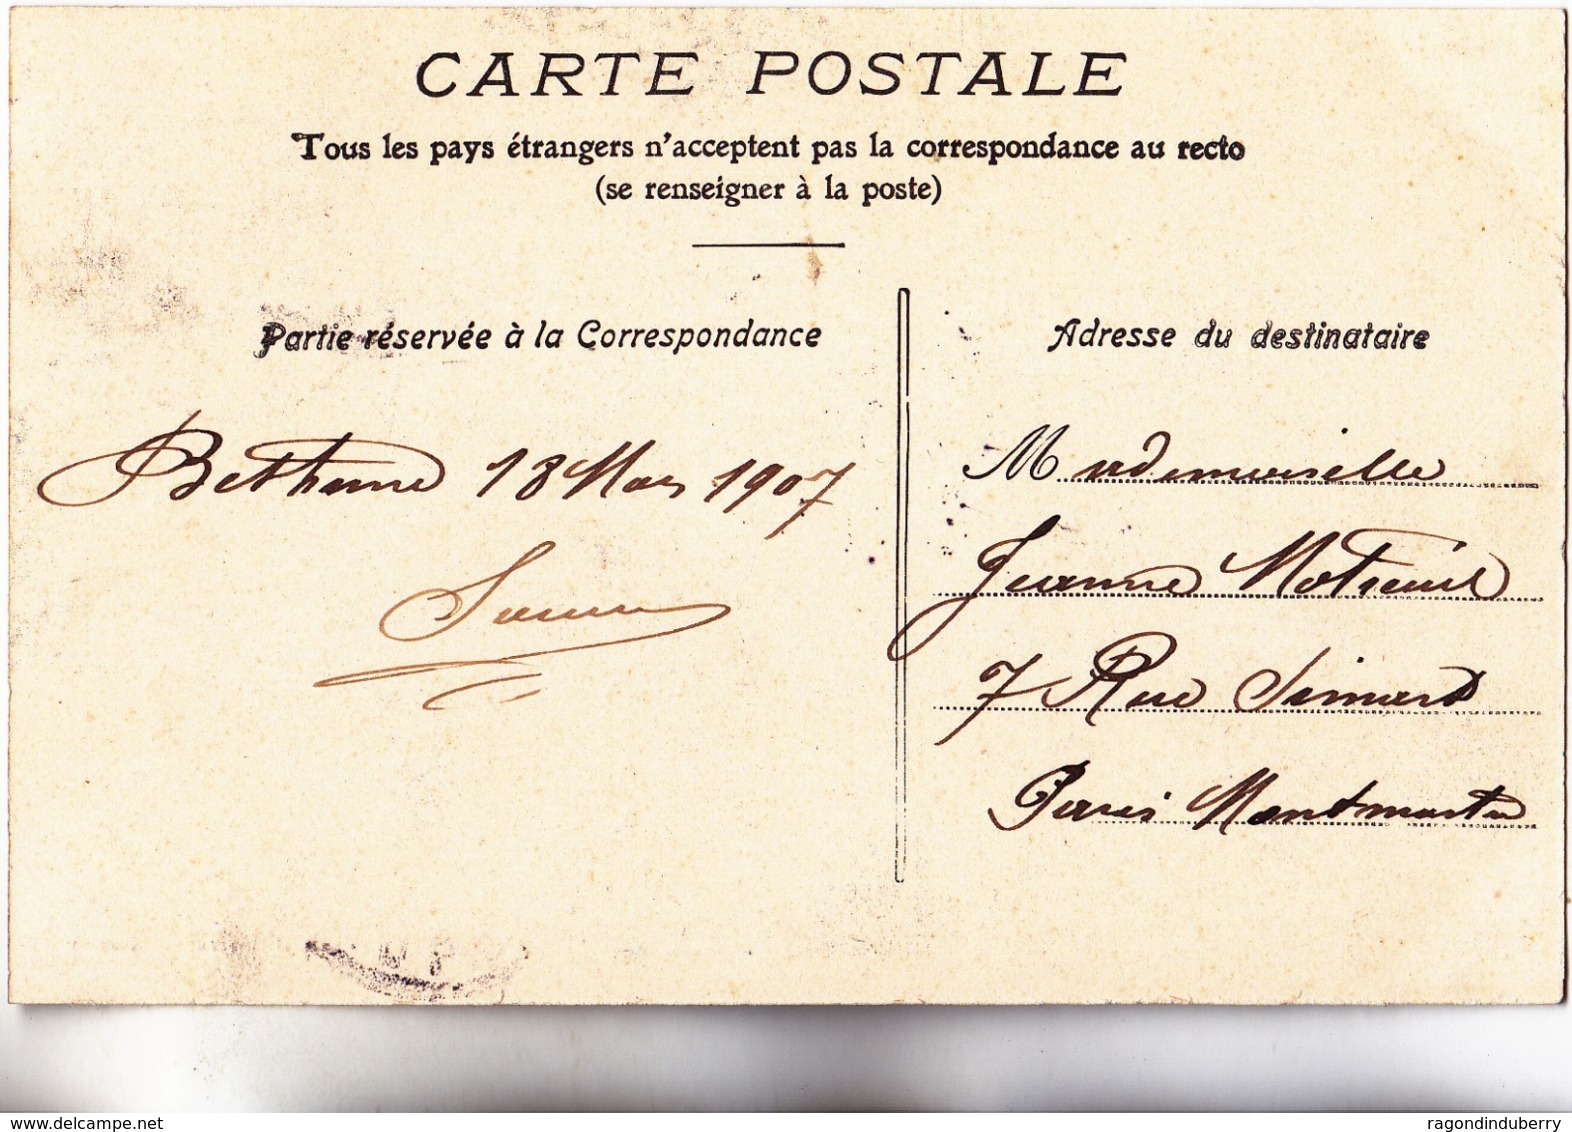 CARTE POSTALE
Tous les pays étrangers n'acceptent pas la correspondance au recto
(se renseigner à la poste)
Partie réservée à la Correspondance
Adresse du destinataire
Bethune 18 Mars 1907
Mademoiselle
Jeanne
7 Rue Simart
Paris Montmartre
delcampe.net
ragondinduberry